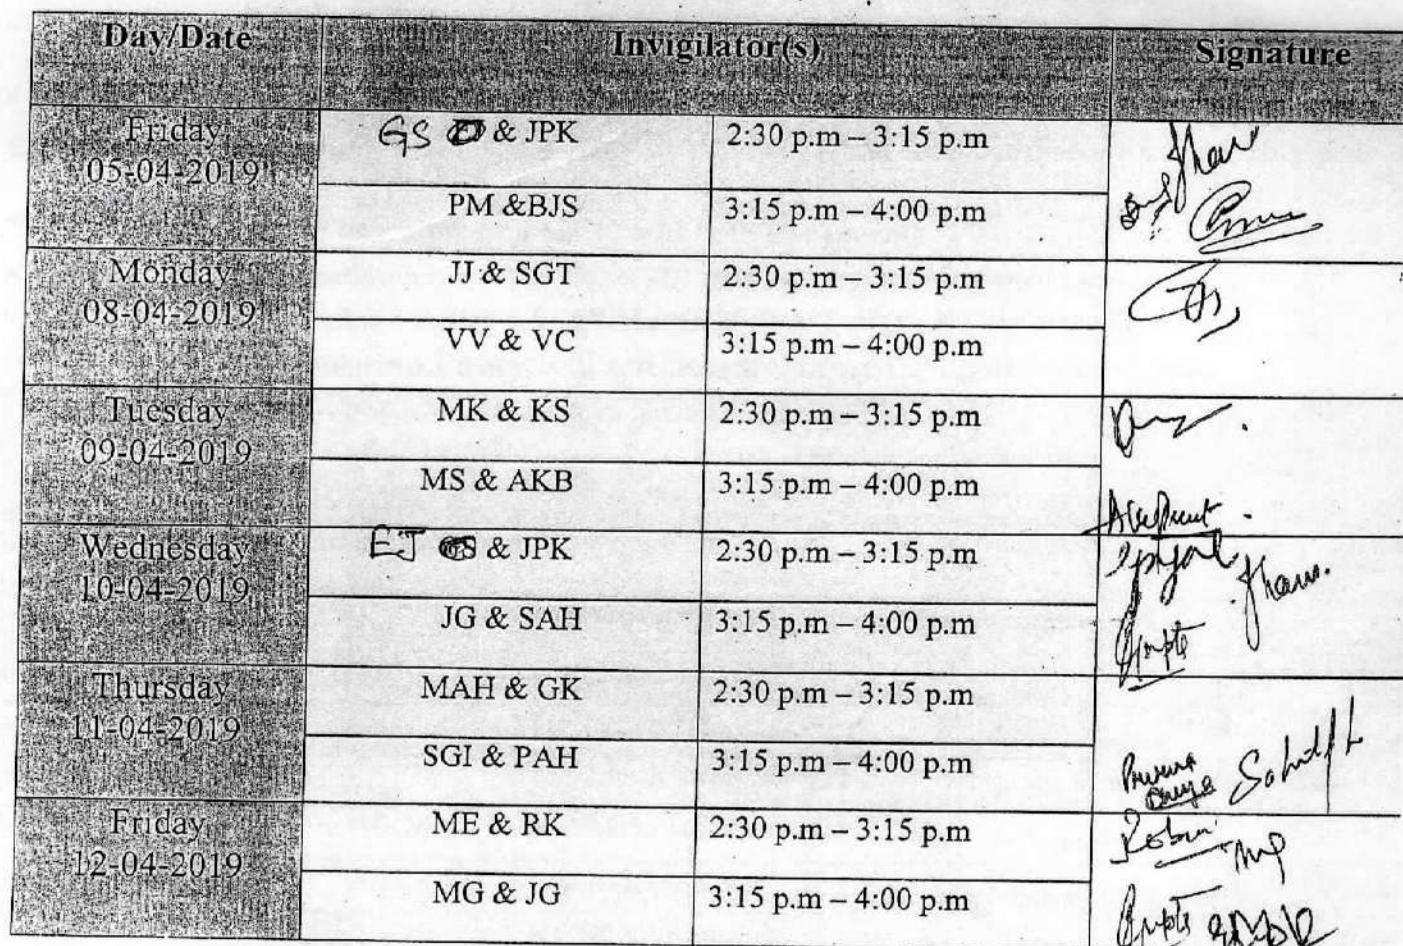 Day/Date Invigilator(s) Signature
Friday
05-04-2019
GS & JPK 2:30 p.m – 3:15 p.m
PM &BJS 3:15 p.m – 4:00 p.m
Monday
08-04-2019
JJ & SGT 2:30 p.m – 3:15 p.m
VV & VC 3:15 p.m – 4:00 p.m
Tuesday
09-04-2019
MK & KS 2:30 p.m – 3:15 p.m
MS & AKB 3:15 p.m – 4:00 p.m
Wednesday
10-04-2019
EJ & JPK 2:30 p.m – 3:15 p.m
JG & SAH 3:15 p.m – 4:00 p.m
Gupte
Thursday
11-04-2019
MAH & GK 2:30 p.m – 3:15 p.m
SGI & PAH 3:15 p.m – 4:00 p.m
Friday
12-04-2019
ME & RK 2:30 p.m – 3:15 p.m
Robin
MG & JG 3:15 p.m – 4:00 p.m
Gupte